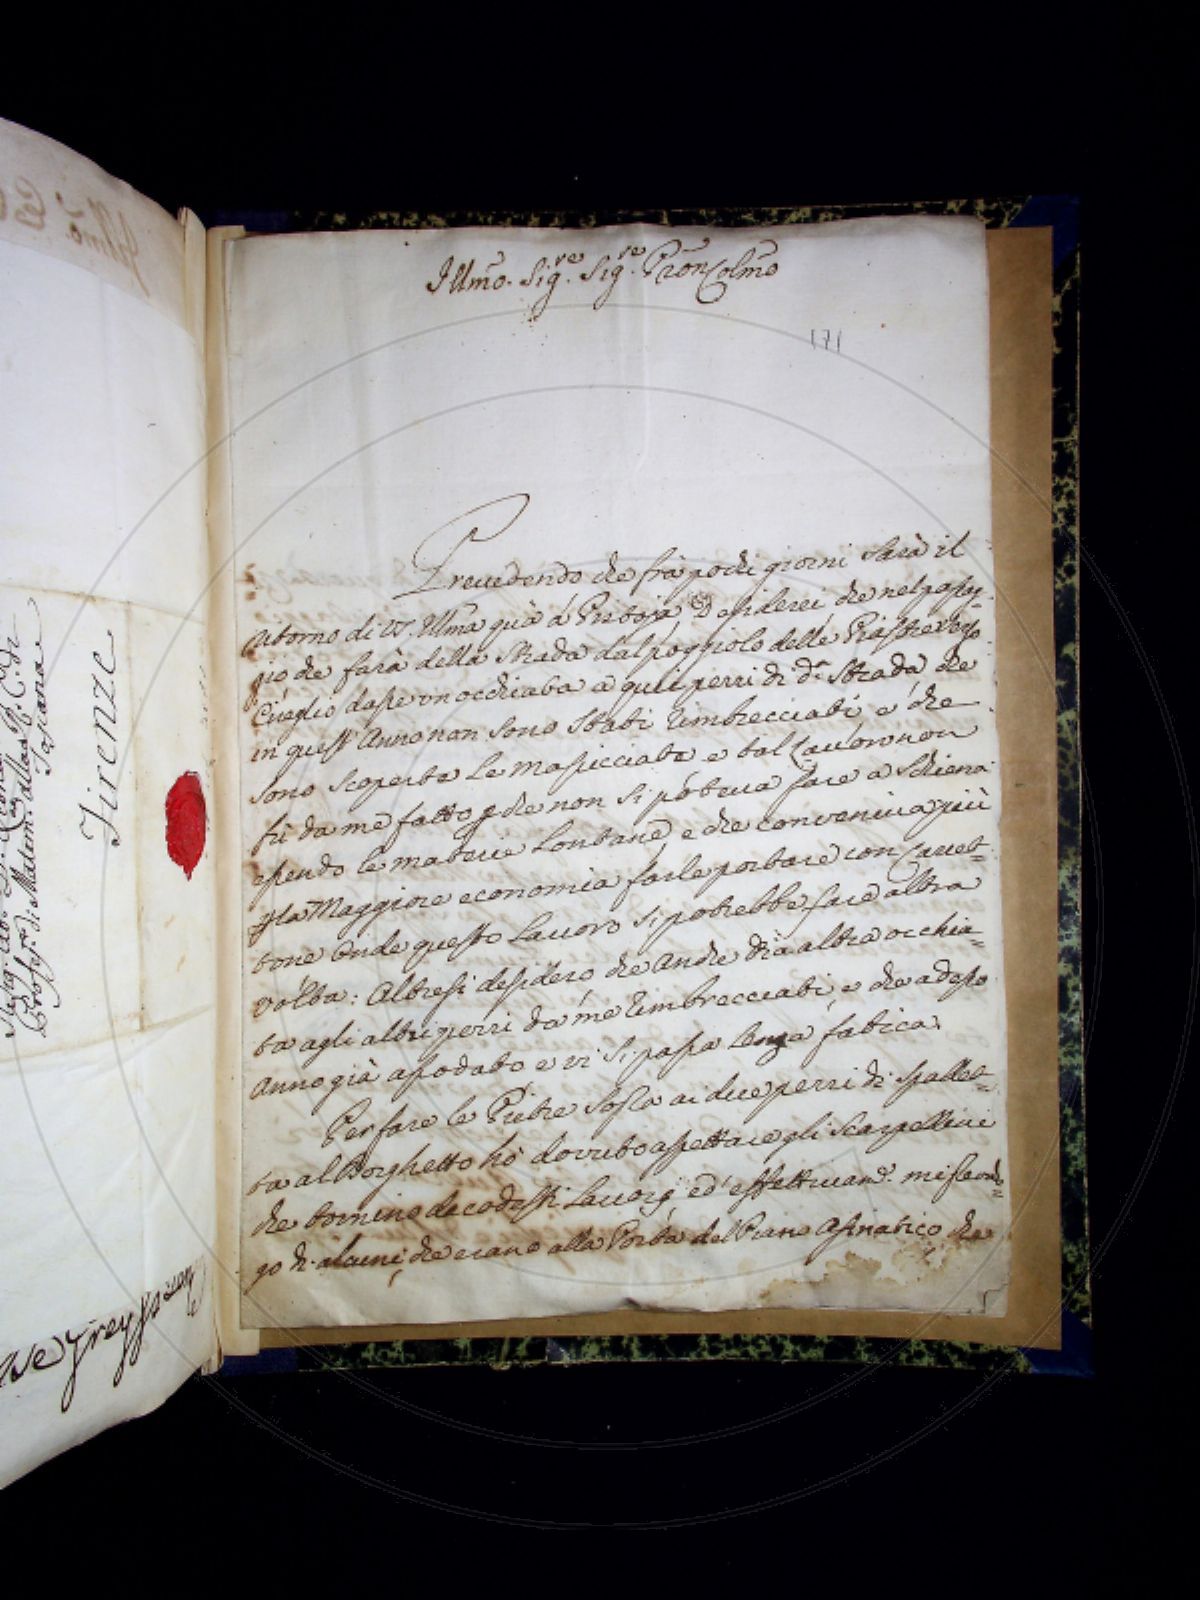 Illmo. Sig.re Sig.re Pron Colmo
171
Prevedendo che frà pochi giorni sarà il
ritorno di VS. Illma quà á Pistoja Desiderei che nel pasag=
gio che farà della Strada dal poggiolo delle Piastre verso
Cireglio dasse un ochiata a quei pezzi di da. Strada che
in quest'Anno non sono stati rimbrecciati e che
sono scoperte le masicciate e tal Lavoro non
fù da me fatto p che non si poteva fare a schiena
essendo le materie Lontane e che conveniva più
p la Maggiore economia farle portare con Carret=
tone Onde questo Lavoro si potrebbe fare altra
volta: Altresi desidero che Anche dia altra occhia=
ta agli altri pezzi da me rimbrecciati e che adesso
Anno già assodato e vi si passa senza fatica.
Per fare le Pietre Sopra ai due pezzi di spallet=
ta al Borghetto hò dovuto aspettare gli Scarpellini
che tornino da codesti Lavori ed effettivam.e mi servo=
go di alcuni che erano alla Porta del Piano Asinatico che
Firenze
Profess.re di Matem.
Toscana